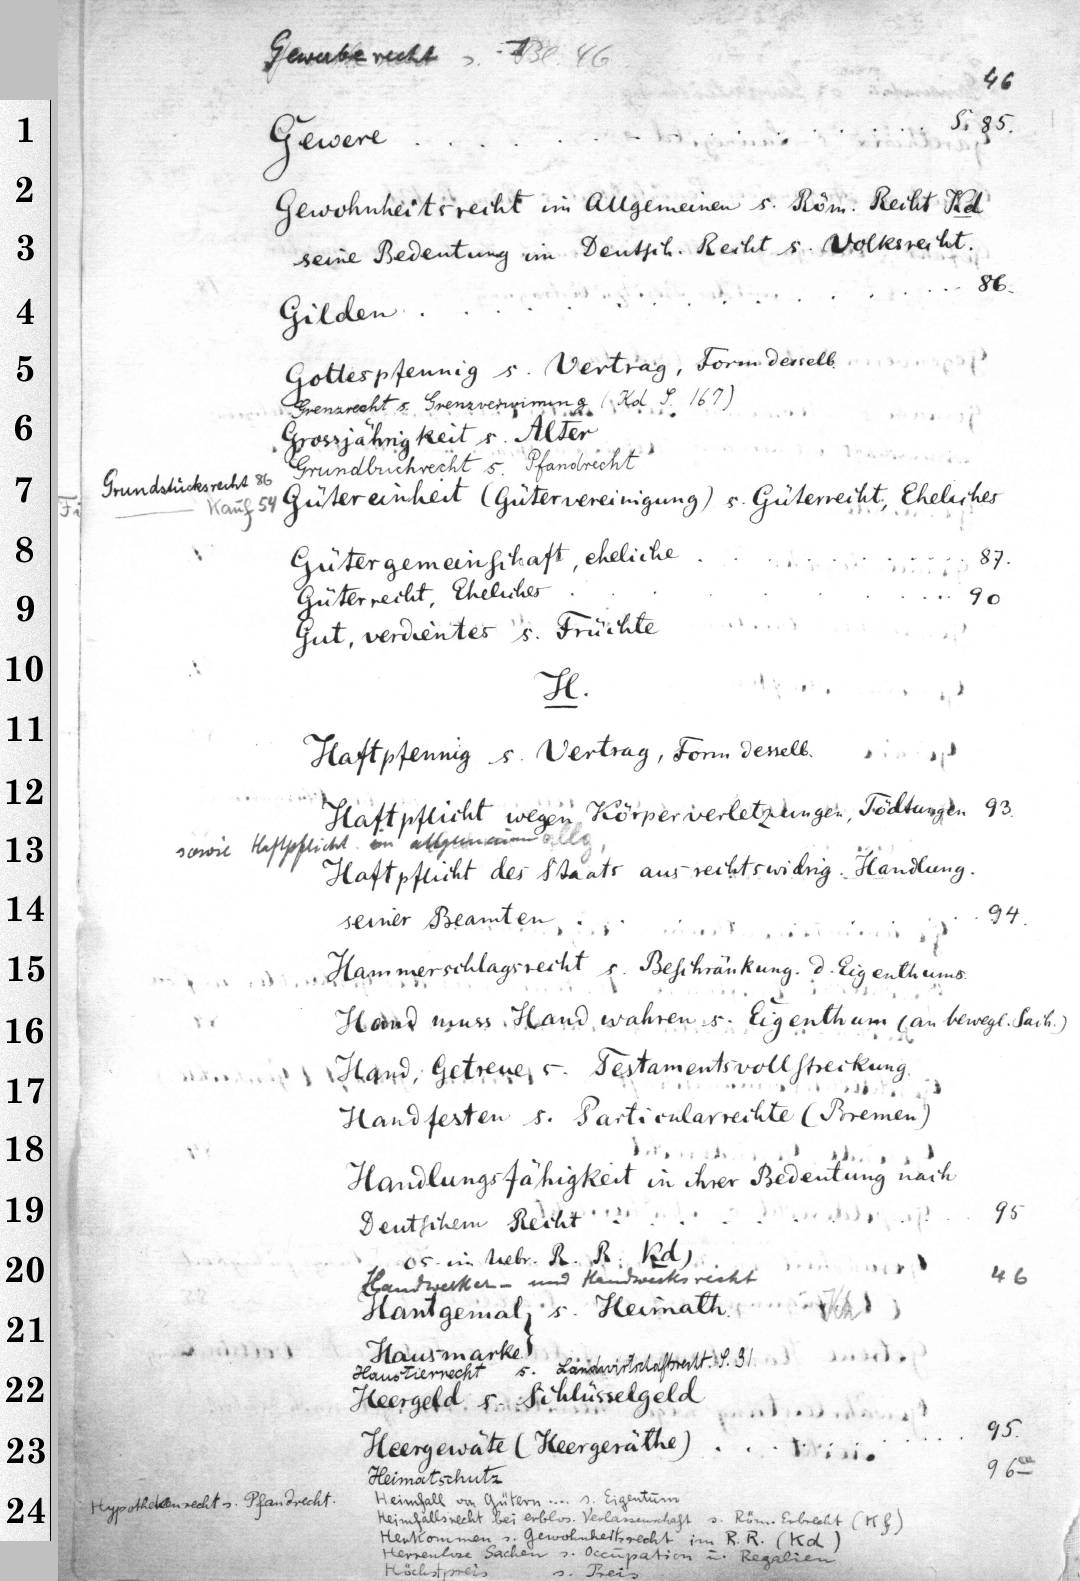 Gewerberecht s. Bl. 46
46
1 Gewere . . . . . . . . . . . . S. 85.
2 Gewohnheitsrecht im Allgemeinen s. Röm. Recht Kd
3 seine Bedeutung im Deutsch. Recht s. Volksrecht.
4 Gilden . . . . . . . . . . . . 86.
5 Gottespfennig s. Vertrag, Form desselb.
Grenzrecht s. Grenzverwirrung (Kd S. 167)
6 Grossjährigkeit s. Alter
Grundbuchrecht s. Pfandrecht
Grundstücksrecht 86
7 Gütereinheit (Gütervereinigung) s. Güterrecht, Eheliches
Kauf 54
8 Gütergemeinschaft, eheliche . . . . . . . . 87.
9 Güterrecht, Eheliches . . . . . . . . 90
Gut, verdientes s. Früchte
10 H.
11 Haftpfennig s. Vertrag, Form desselb.
12 Haftpflicht wegen Körperverletzungen, Tödtungen 93.
sowie Haftpflicht im allgemeinen allg.
13 Haftpflicht des Staats aus rechtswidrig. Handlung.
14 seiner Beamten . . . . . . . . 94.
15 Hammerschlagsrecht s. Beschränkung. d. Eigenthums.
16 Hand muss Hand wahren s. Eigenthum (an bewegl. Sach.)
17 Hand, Getreue, s. Testamentsvollstreckung.
18 Handfesten s. Particularrechte (Bremen)
Handlungsfähigkeit in ihrer Bedeutung nach
19 Deutschem Recht . . . . . . . . 95
20 (s. im Uebr. R. R. Kd)
Handwerker- und Handwerksrecht 46
21 Hantgemal, s. Heimath.
Hausmarke
Haustierrecht s. Landwirtschaftsrecht. S. 31.
22 Heergeld s. Schlüsselgeld
23 Heergewäte (Heergeräthe) . . . . . . . . 95.
Heimatschutz 96
24 Heimfall von Gütern .... s. Eigentum
Hypothekenrecht s. Pfandrecht.
Heimfallsrecht bei erblos. Verlassenschaft s. Röm. Erbrecht (Kf)
Herkommen s. Gewohnheitsrecht im R. R. (Kd)
Herrenlose Sachen s. Occupation u. Regalien
Höchstpreis s. Preis